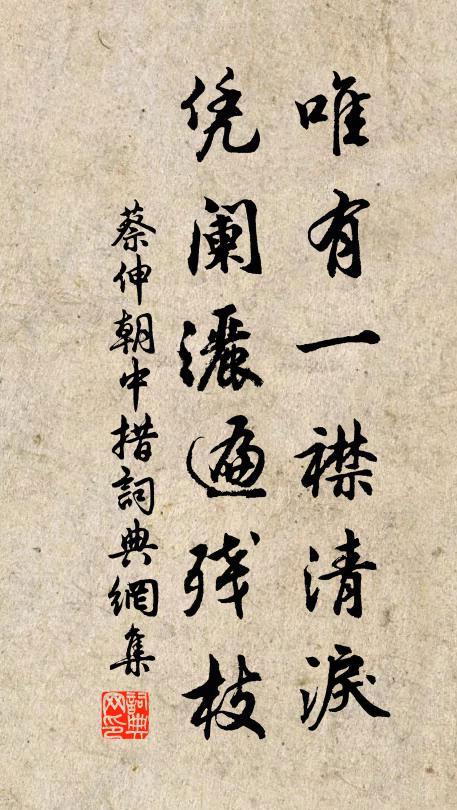 唯有一襟清淚
凭阑灑遍残枝
蔡伸朝中措詞典網集
詞典网印